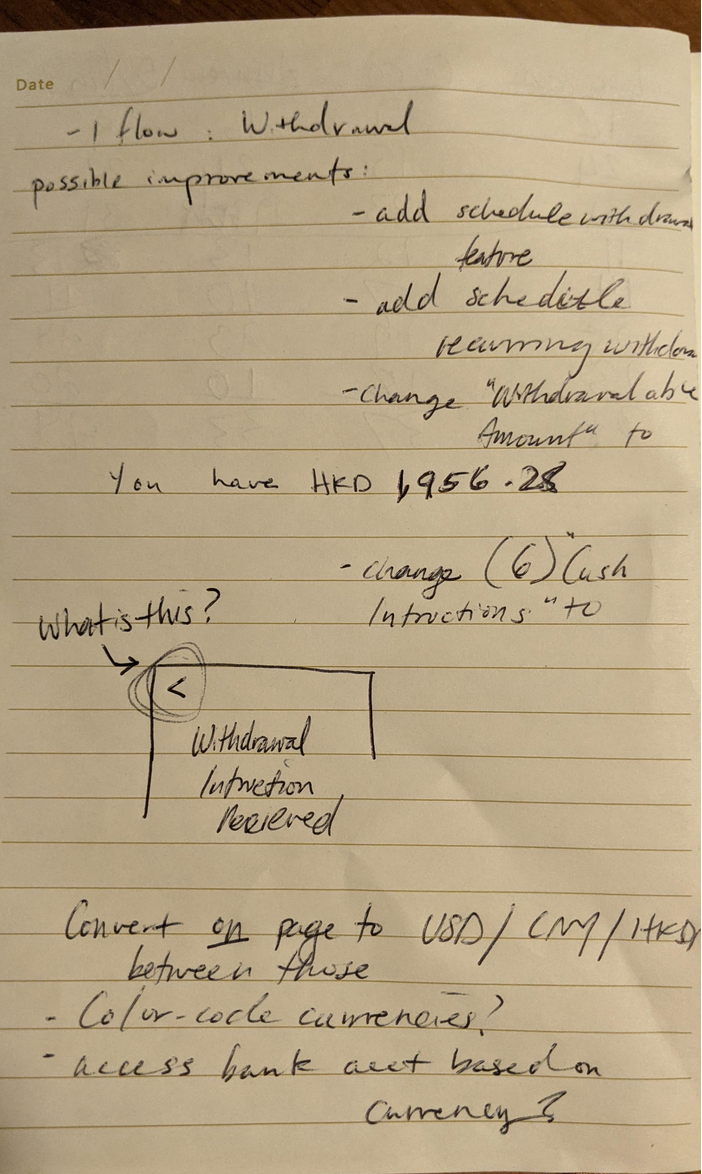 Date / /
- 1 flow : Withdrawal
possible improvements:
- add schedule withdrawal
feature
- add
recurring withdraw
- change "Withdrawalable
Amount" to
You have HKD 1,956.28
- change (6) "Cash
Intructions" to
What is this?
<
Withdrawal
Intruction
Recieved
Convert on page to USD/CNY/HKD
between those
- Color-code currencies?
- access bank acct based on
currency?